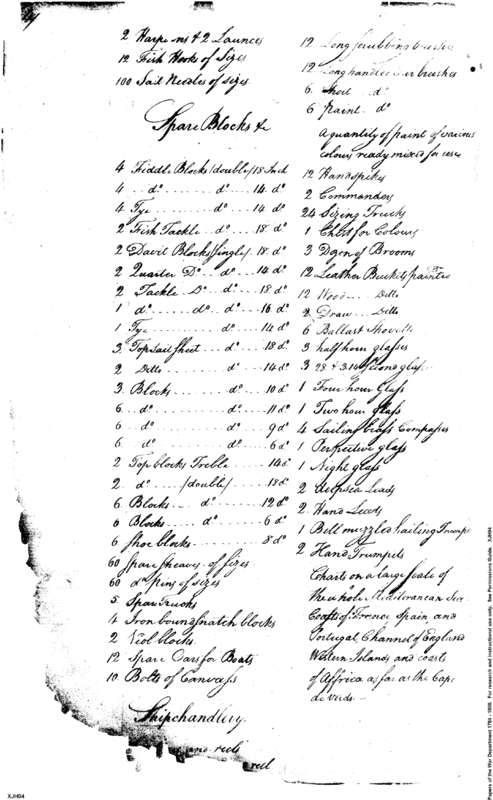 2 Harpoons & 2 Launces
12 Fish Hooks of Sizes
100 Sail Needles of sizes
Spare Blocks &c
4 Fiddle Blocks (double) 18 Inch
4 .. do ....... do .. 14 do
4 Tye ......... do .. 14 do
2 Fish Tackle .. do .. 18 do
2 Davit Blocks (single) 18 do
2 Quarter Do .. do .. 14 do
2 Tackle Do .. do .. 18 do
1 do ..... do .. do .. 16 do
1 Tye ......... do .. 14 do
3 Topsail Sheet .. do .. 18 do
2 Ditto ........ do .. 14 do
3 Blocks ....... do .. 10 do
6 .. do ........ do .. 11 do
6 .. do ........ do .. 9 do
6 do ......... do .. 6 do
2 Top blocks Treble .... 14 do
2 do .... (double) .... 18 do
6 Blocks .... do .... 12 do
6 Blocks .... do .... 6 do
6 Shoe blocks ........ 8 do
60 Spare sheaves of Sizes
60 do pins of sizes
5 Spar Trucks
4 Iron bound snatch blocks
2 Viol blocks
12 Spare Oars for Boats
10 Bolts of Canvass
Shipchandlery.
and reels
reel
12 Long scrubbing brushes
12 Long handled Tar brushes
6 Short do
6 Paint do
A quantity of paint of various
colours ready mixed for use
12 Handspikes
2 Commanders
24 Sizing Trucks
1 Chest for Colours
3 Dozen of Brooms
12 Leather Buckets painted
12 Wood .. Ditto
2 Draw .. Ditto
6 Ballast Shovells
3 half hour glasses
3 28 & 3. 14 second glass
1 Four hour Glass
1 Two hour glass
4 Sailing brass Compasses
1 Perspective glass
1 Night glass
2 deepsea Leads
2 Hand Leads
1 Bell muzzled hailing Trumpe
2 Hand Trumpets
Charts on a large scale of
the whole Mediteranean Sea
Coasts of France Spain and
Portugal, Channel of England
Western Islands and coasts
of Affrica as far as the Cape
de verds.
XJH04
Papers of the War Department 1784 - 1800. For research and instructional use only. See Permissions Guide. XJH04